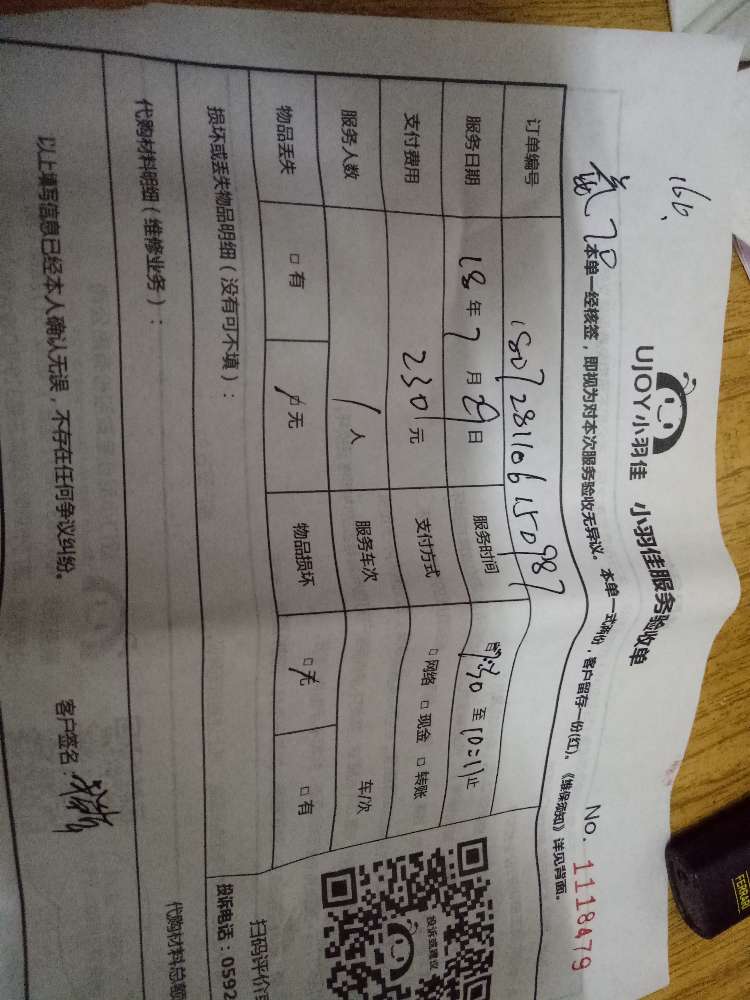 166.
UJOY小羽佳 小羽佳服务验收单
No. 1118479
本单一经核签，即视为对本次服务验收无异议。本单一式两份，客户留存一份(红)。《维保须知》详见背面。
订单编号 1807281106150987
服务日期 18年7月29日 服务时间 :30 至 10:11 止
支付费用 230元 支付方式 □网络 □现金 □转账
服务人数 1人 服务车次 车/次
物品丢失 □有 □无 物品损坏 □无 □有
损坏或丢失物品明细（没有可不填）：
扫码评价
投诉或建议
投诉电话：0592
代购材料明细（维修业务）：
代购材料总额
以上填写信息已经本人确认无误，不存在任何争议纠纷。
客户签名：